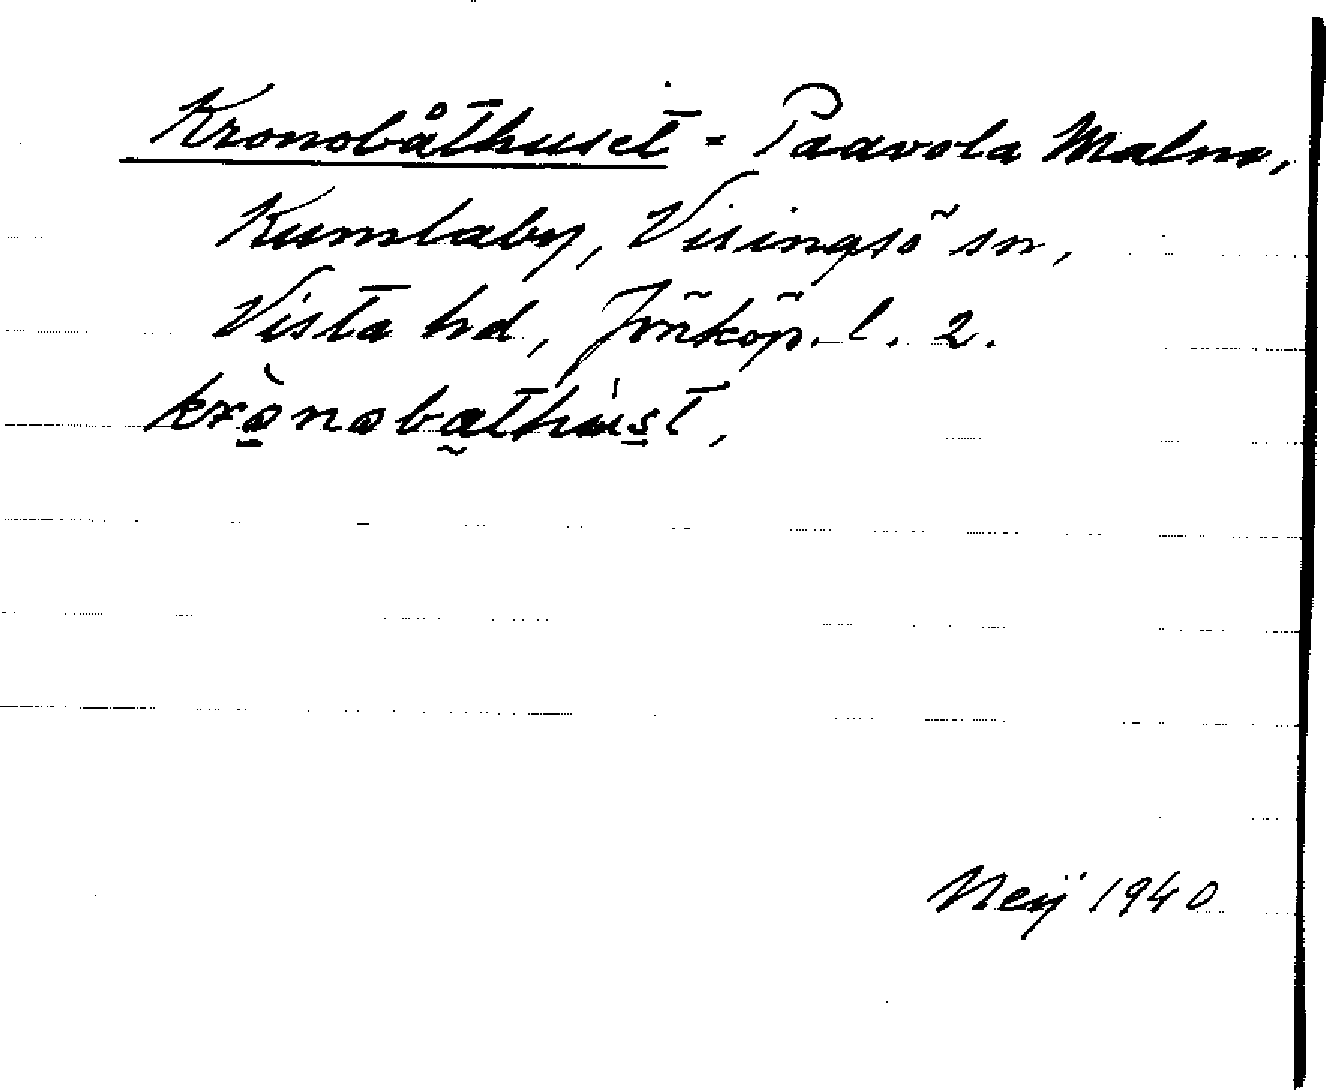 Kronobåthuset = Paavola Malm,
Kumlaby, Visingsö sn,
Vista hd, Jönköp. l. 2.
krònobathúst,
Neij 1940